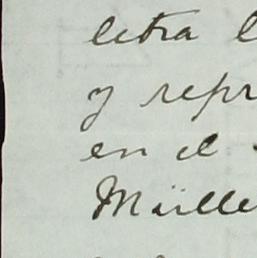 letra l
y repr
en el
Mülle